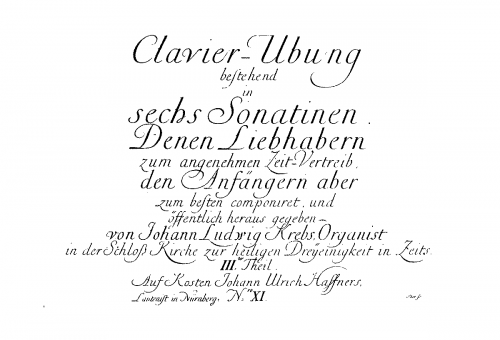 Clavier-Ubung
bestehend
in
sechs Sonatinen.
Denen Liebhabern
zum angenehmen Zeit-Vertreib,
den Anfängern aber
zum besten componiret, und
öffentlich heraus gegeben
von Johann Ludwig Krebs, Organist
in der Schloß Kirche zur heiligen Dreyeinigkeit in Zeits.
III. Theil.
Auf Kosten Johann Ulrich Haffners,
Lautenist in Nürnberg. No. XI.